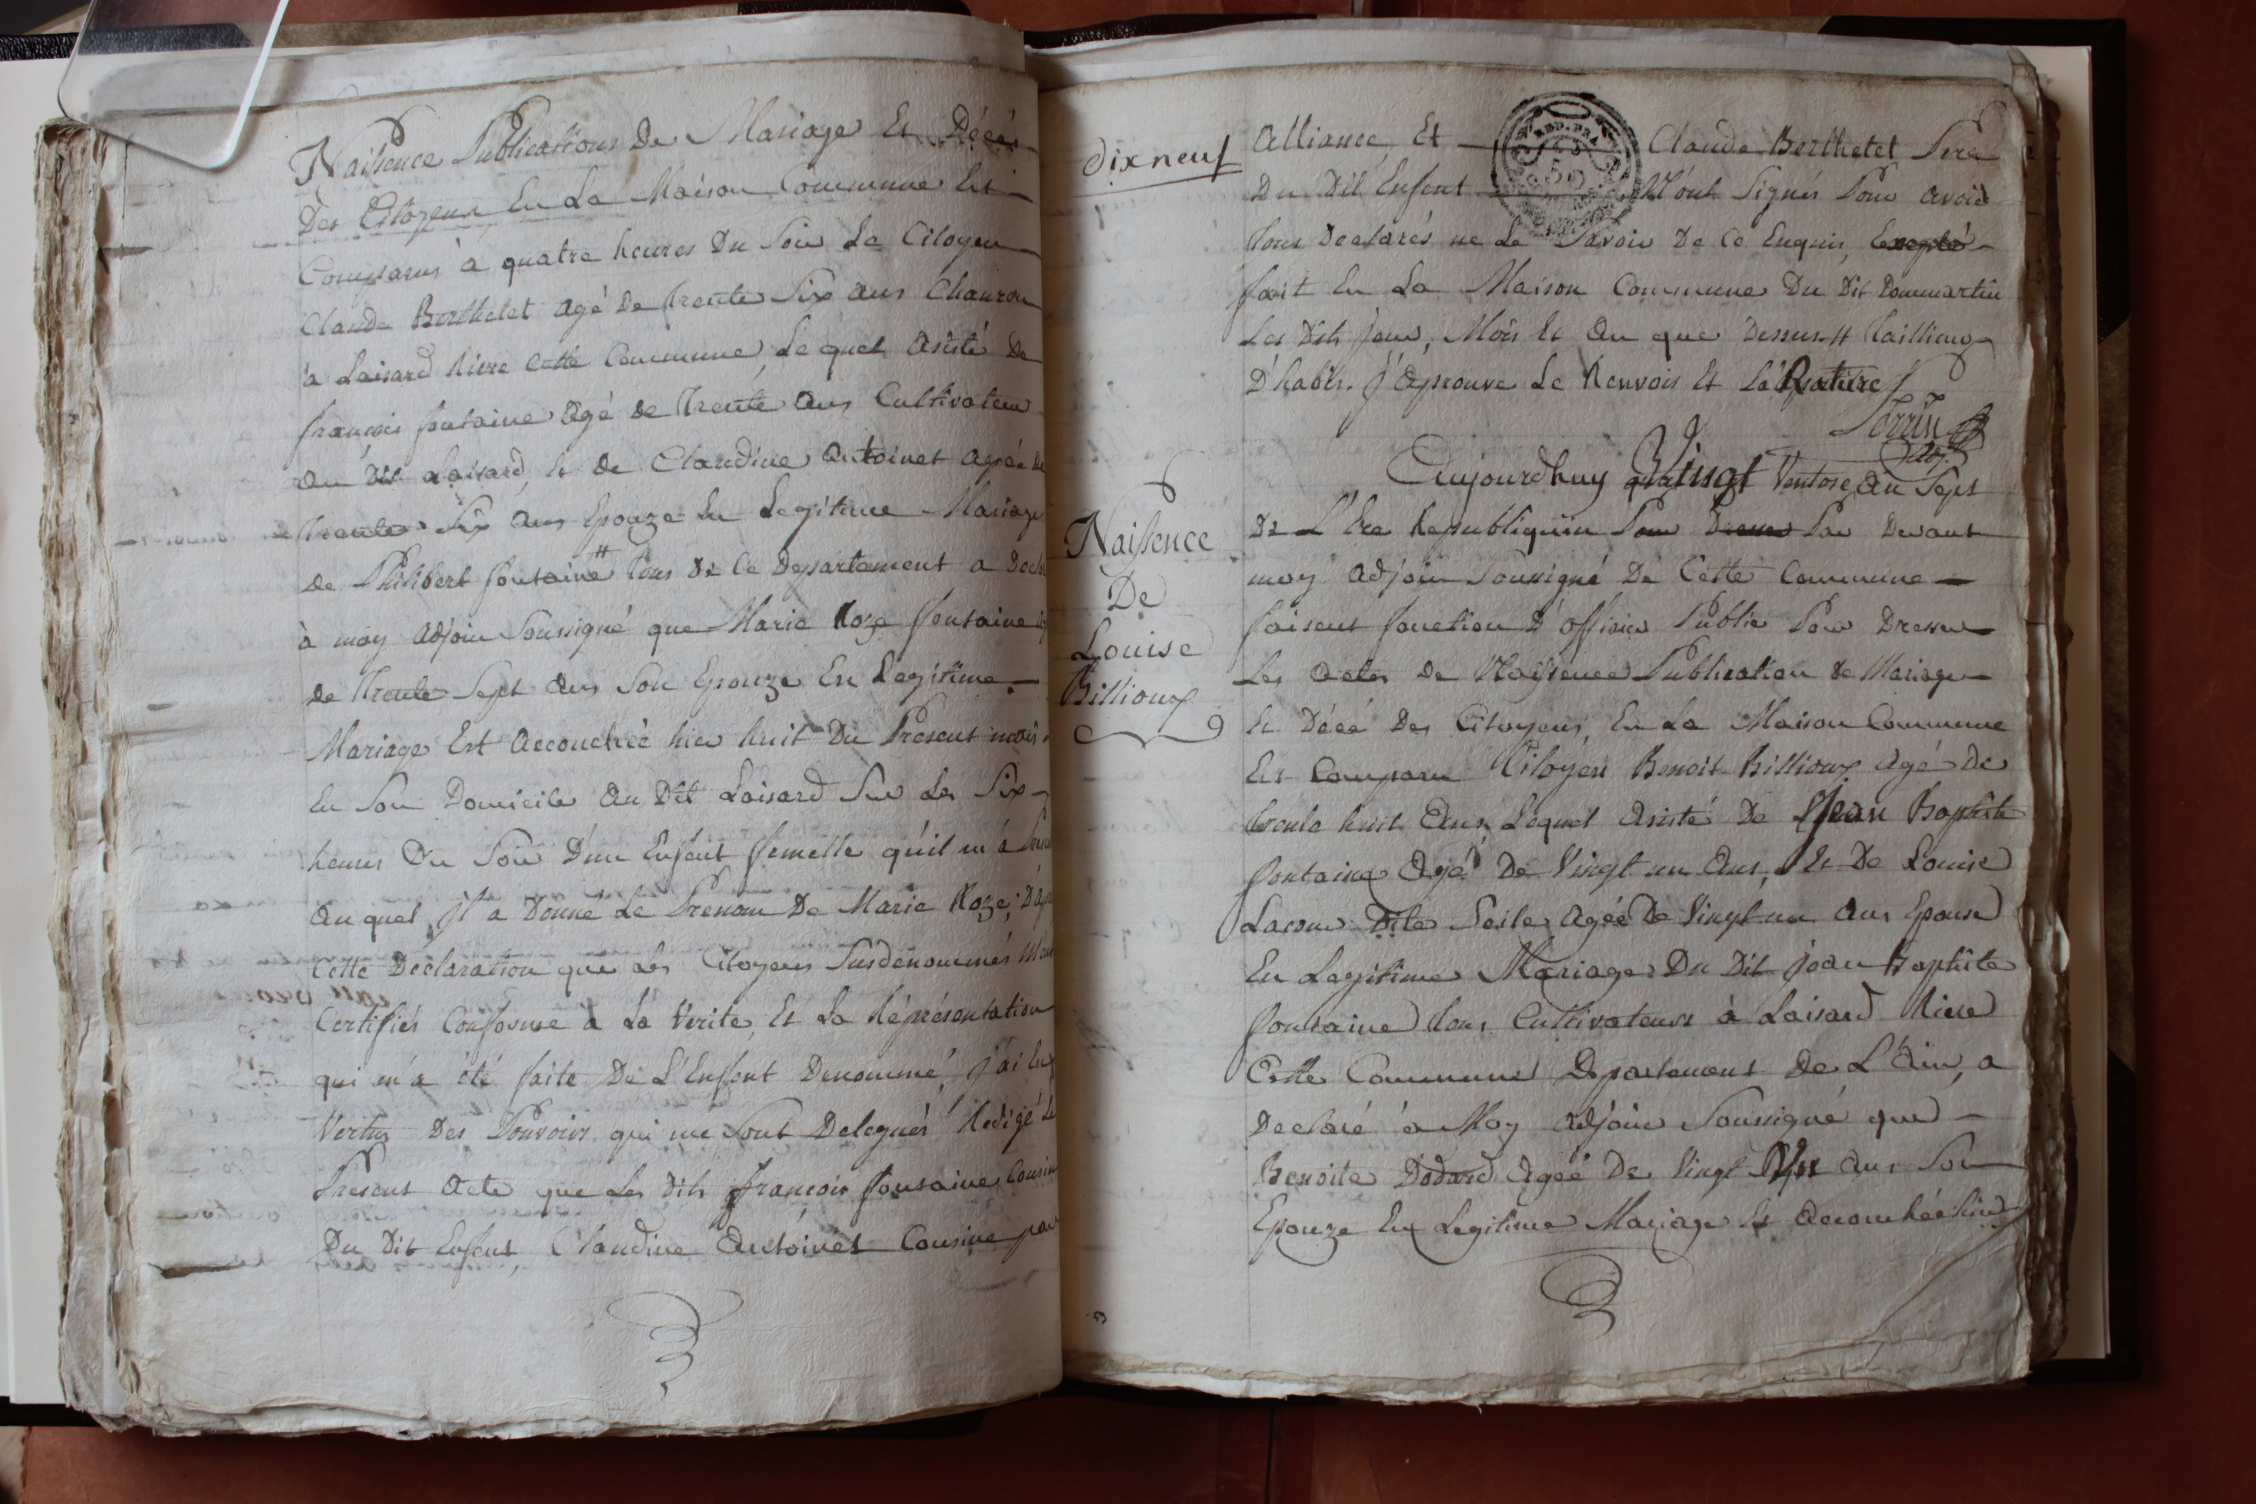 Naissence Publications De Mariage Et Décés
Des Citoyens En La Maison Commune Est
Comparus à quatre heures Du Soir Le Citoyen
Claude Berthelet agé De trente Six ans Chauron
à Laisard hiere Cette Commune, Le quel Asisté De
françois fontaine agé de Trente ans Cultivateur
Du Dit Laisard, Et de Claudine Antoinet agéé de
Trente Six ans Epouze En Legitime Mariage
de Philibert fontaine # tous De Ce Departement a Decla
à moy adjoin Soussigné que Marie Roze fontaine
de Trente Sept ans Son Epouze En Legitime
Mariage Est Accouchéé hier huit Du Present mois
En Son Domicile Au Dit Laisard Sur Les Six
heures Du Soir D'un Enfant femelle qu'il m'a
Auquel il a Donné Le Prenom De Marie Roze;
Cette Declaration que Les Citoyens Susdenommés
Certifiés Conforme à La Verité, Et La Représentation
qui m'a été faite De L'Enfant Denommé, j'ai En
Vertus Des Pouvoirs qui me Sont Delegués Redigé Le
Present Acte que Les Dits françois fontaine Cousin
Du Dit Enfent, Claudine Antoinet Cousine par
dix neuf
Alliance, Et Claude Berthelet Pere
Du Dit Enfent N'ont Signés Pour avoir
tous Declarés ne Le Savoir De Ce Enquis,
fait En La Maison Commune Du Dit Dommartin
Les Dits jour, Mois Et An que Dessus. # Tailleur
D'habits. J'Aprouve Le Renvois Et La Rature
Perrin
adj.
Naissence
De
Louise
Billioux
Aujourdhuy Vingt Ventose, An Sept
De L'Ere Republiquin Par Devant
moy Adjoin Soussigné De Cette Commune
faisent fonction D'officier Public Pour Dresser
Les Actes De Naissence Publication De Mariage
Et Décé Des Citoyens, En La Maison Commune
Est Comparu Citoyen Benoit Billioux Agé De
trente huit Ans, Lequel Asisté De Jean Baptiste
fontaine Agé De Vingt un Ans, Et De Louise
Lacour Agéé De Vingt un Ans Epouse
En Legitime Mariage Du Dit Jean Baptiste
fontaine tous Cultivateurs à Laisard hiere
Cette Commune Departement De L'Ain, a
Declaré à Moy Adjoin Soussigné que
Benoite Dodard Agéé De Vingt ans Son
Epouze En Legitime Mariage Et Accouchéé hier